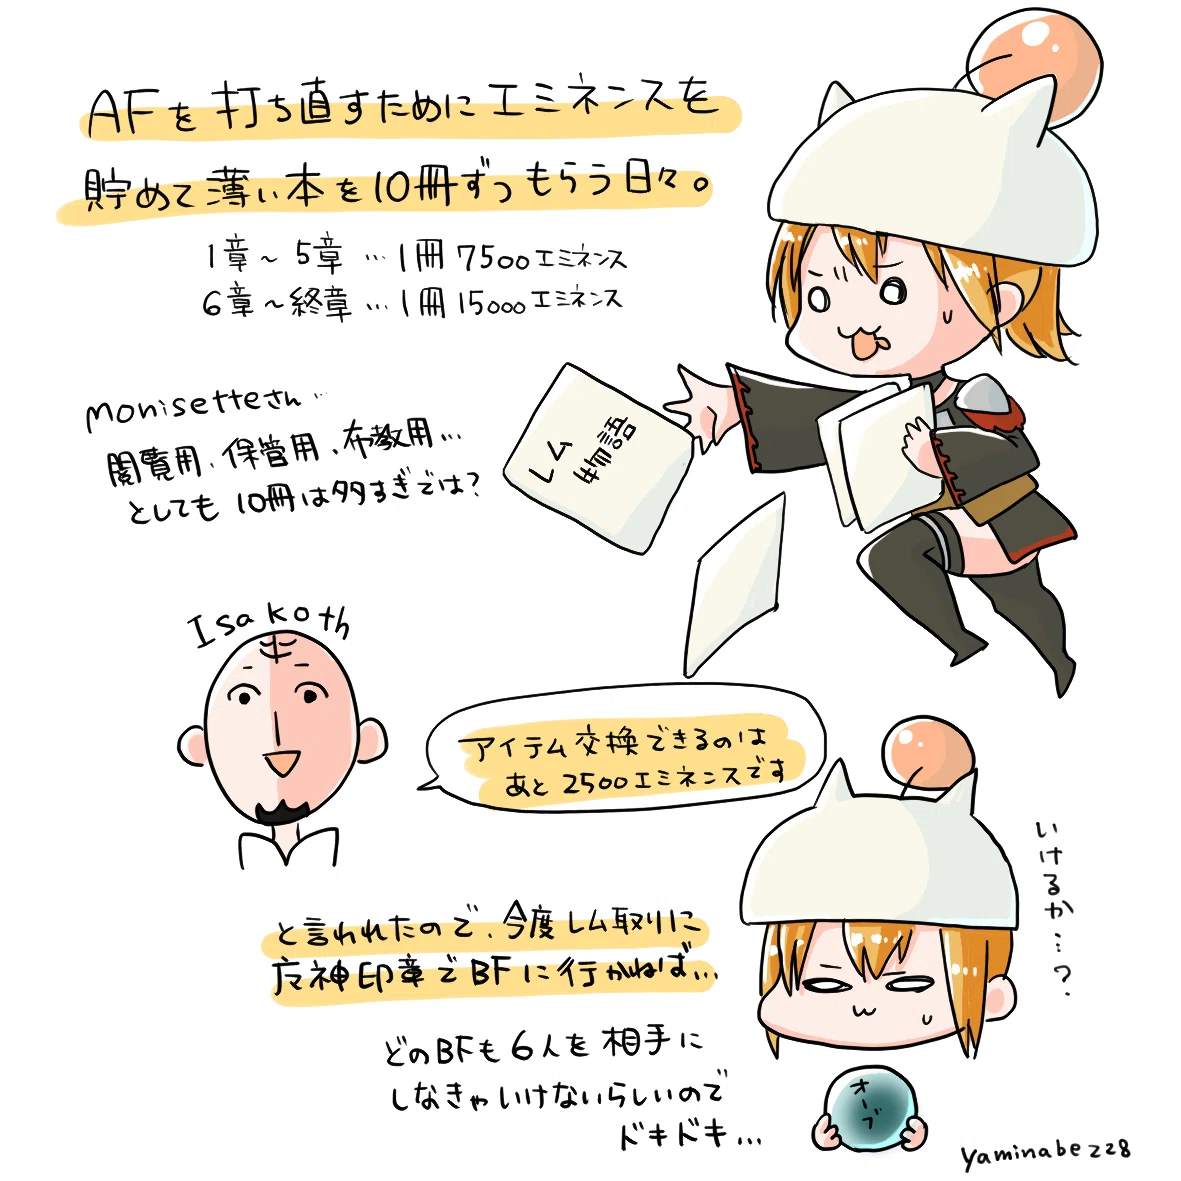 AFを打ち直すためにエミネンスを
貯めて薄い本を10冊ずつもらう日々。
1章～5章…1冊7500エミネンス
6章～終章…1冊15000エミネンス
monisetteさん…
閲覧用、保管用、布教用…
としても10冊は多すぎでは?
レム
物語
Isakoth
アイテム交換できるのは
あと2500エミネンスです
いけるか…?
と言われたので、今度レム取りに
魔神印章でBFに行かねば…
どのBFも6人を相手に
しなきゃいけないらしいので
ドキドキ…
オーブ
yaminabe228